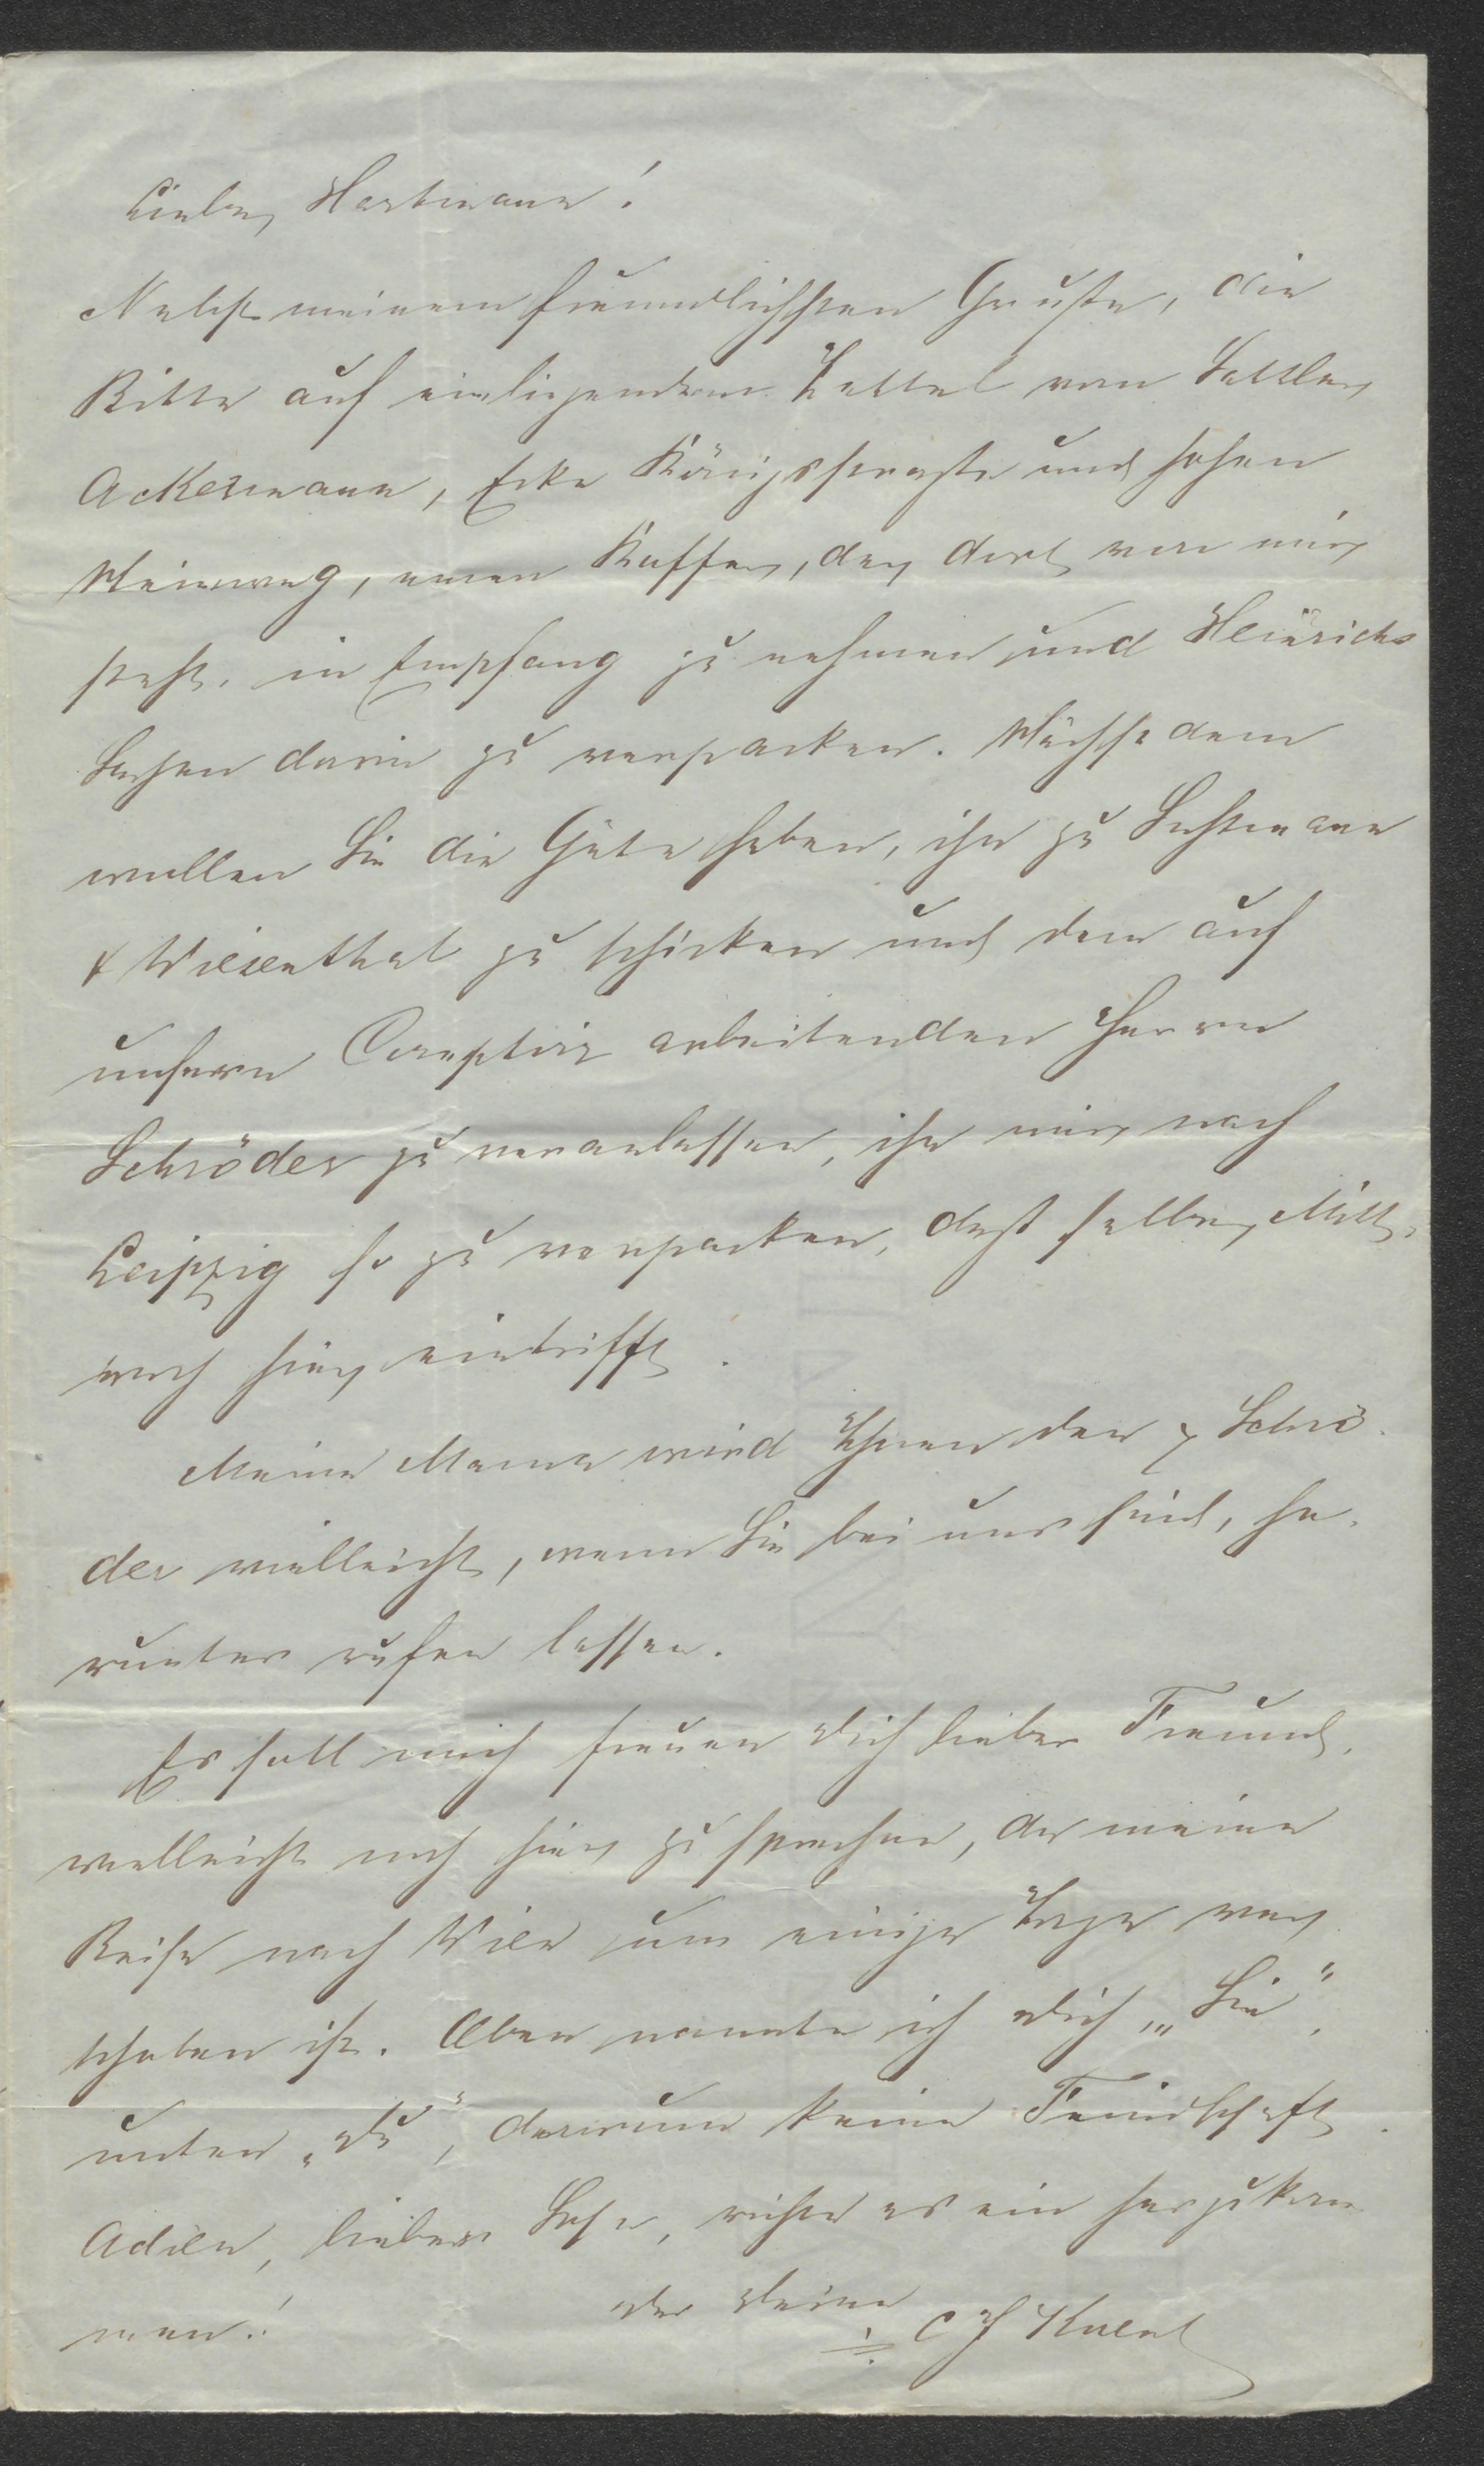 Lieber Hartmann!
Nebst meinem freundlichsten Gruße, die
Bitte auf einligendem Zettel vom Sattler
Ackermann, Ecke Königsstraße und hohen
Steinweg, einen Koffer, der dort von mir
steht, in Empfang zu nehmen und Heinrichs
Sachen darin zu verpacken. Nächstdem
wollen Sie die Güte haben, ihn zu
& Wiesenthal zu schicken und den auf
unserm Comptoir arbeitenden Herrn
Schröder zu veranlassen, ihn mir nach
Leipzig so zu verpacken, daß selber Mitt-
woch hier eintrifft.
Meine Mama wird Ihnen den Schrö-
der vielleicht, wenn Sie bei uns sind, he-
runter rufen lassen.
Es soll mich freuen Dich lieber Freund,
vielleicht noch hier zu sprechen, da meine
Reise nach Wien um einige Tage ver-
schoben ist. Oben nannte ich Dich „Sie“,
unten „Du“, darum keine Feindschaft.
Adieu, lieber Sohn, richte es ein herzukom-
men!
Der Deine
C F